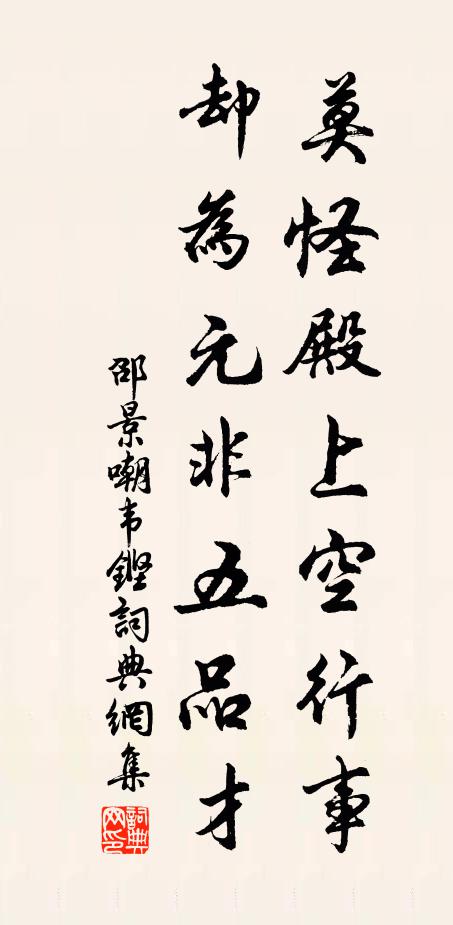 莫怪殿上空行事
却為元非五品才
邵景嘲韦鏗詞典網集
詞典網印